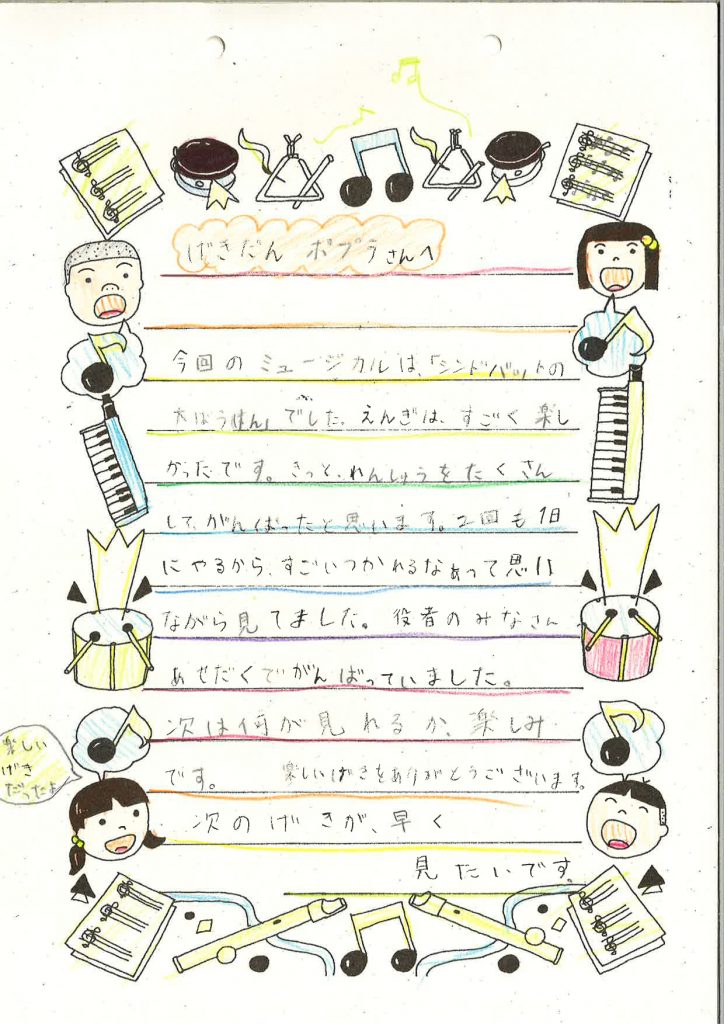 げきだん ポプラさんへ
今回のミュージカルは、「シンドバットの
大ぼうけん」でした。えんぎは、すごく楽し
かったです。きっと、れんしゅうをたくさん
して、がんばったと思います。2回も1日
にやるから、すごいつかれるなぁって思い
ながら見てました。役者のみなさん
あせだくでがんばっていました。
次は何が見れるか、楽しみ
です。 楽しいげきをありがとうございます。
次のげきが、早く
見たいです。
楽しい
げき
だったよ